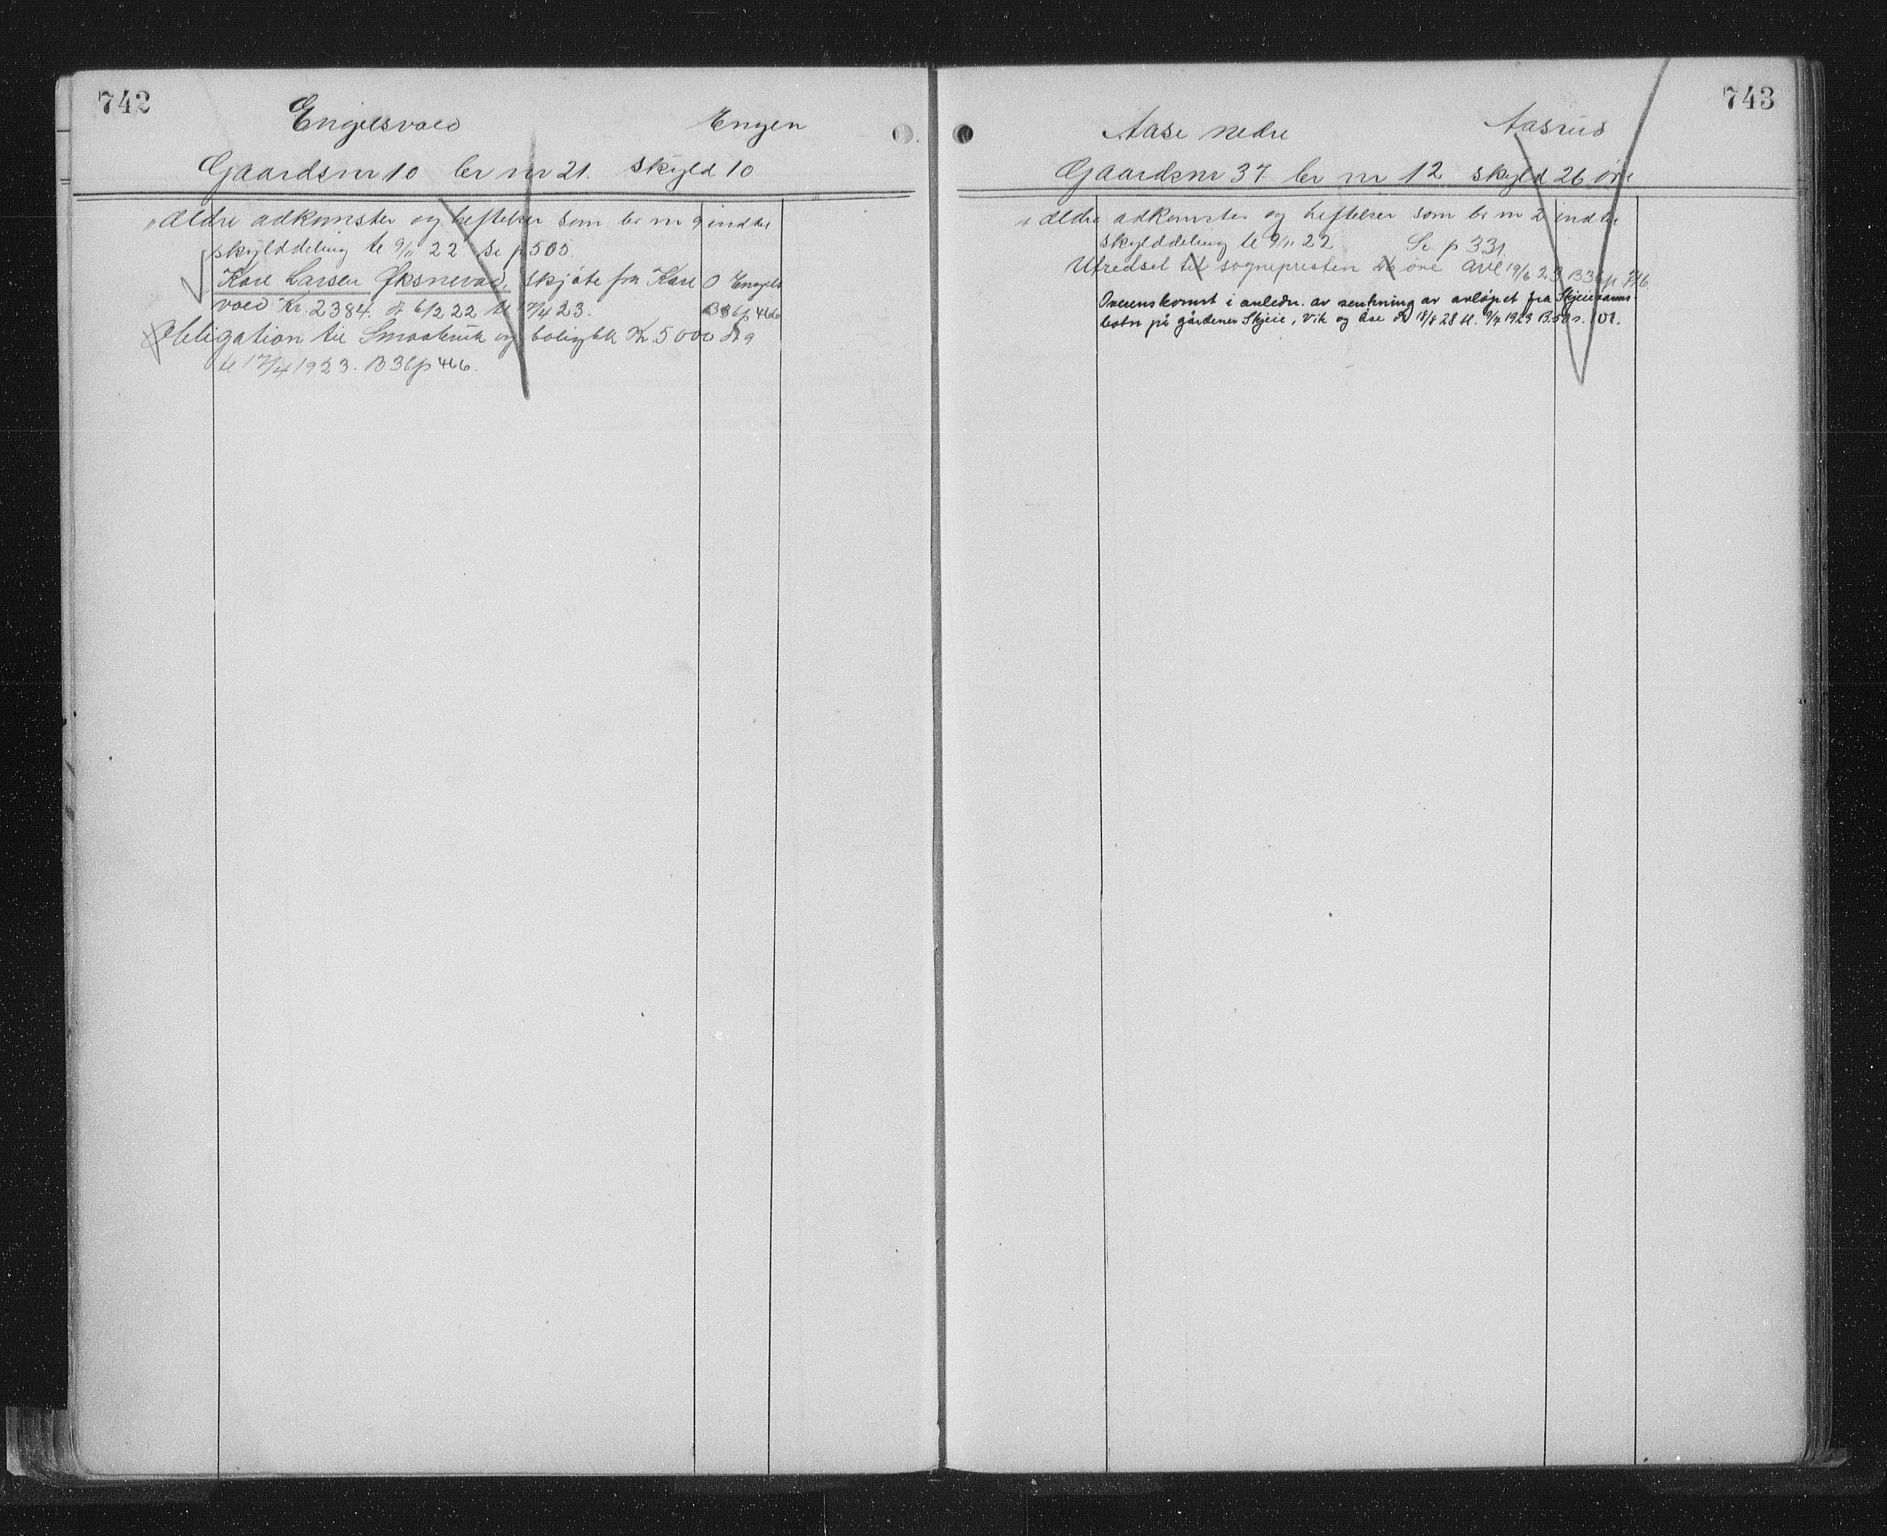 742
Engelsvold Engen
Gaardsnr 10 br nr 21. skyld 10
Ældre adkomster og heftelser som br nr 9 indtil
skylddeling tl 9/11 22 Se p 505.
Karl Larsen Øksnevad, skjøte fra Karl O Engels
vold Kr. 2384. d 6/2 22 tl 17/4 23. B 36 p 446
Obligation til Smaabruk og boligbk Kr 5000 d 9
tl 17/4 1923. B 36 p 446.
743
Aase nedre Aasrud
Gaardsnr 37 br nr 12 skyld 26 øre
Ældre adkomster og heftelser som br nr 2 indtil
skylddeling tl 9/11 22 Se p 331
Utredsel til sognepresten 26 øre avl 19/6 23 B 36 p
Overenskomst i anledn. av senkning av avløpet fra Skjeievanns
botn på gårdene Skjeie, Vik og Åse d 18/8 28 tl. 9/4 1929 B. 50 s. 101.